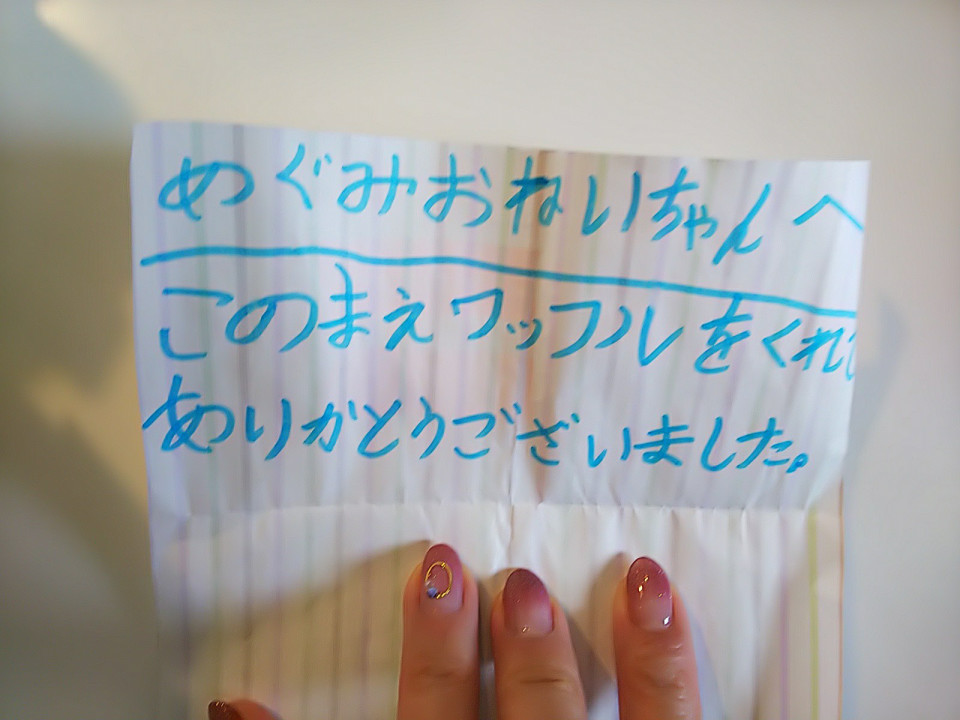 めぐみおねいちゃんへ
このまえワッフルをくれて
ありがとうございました。